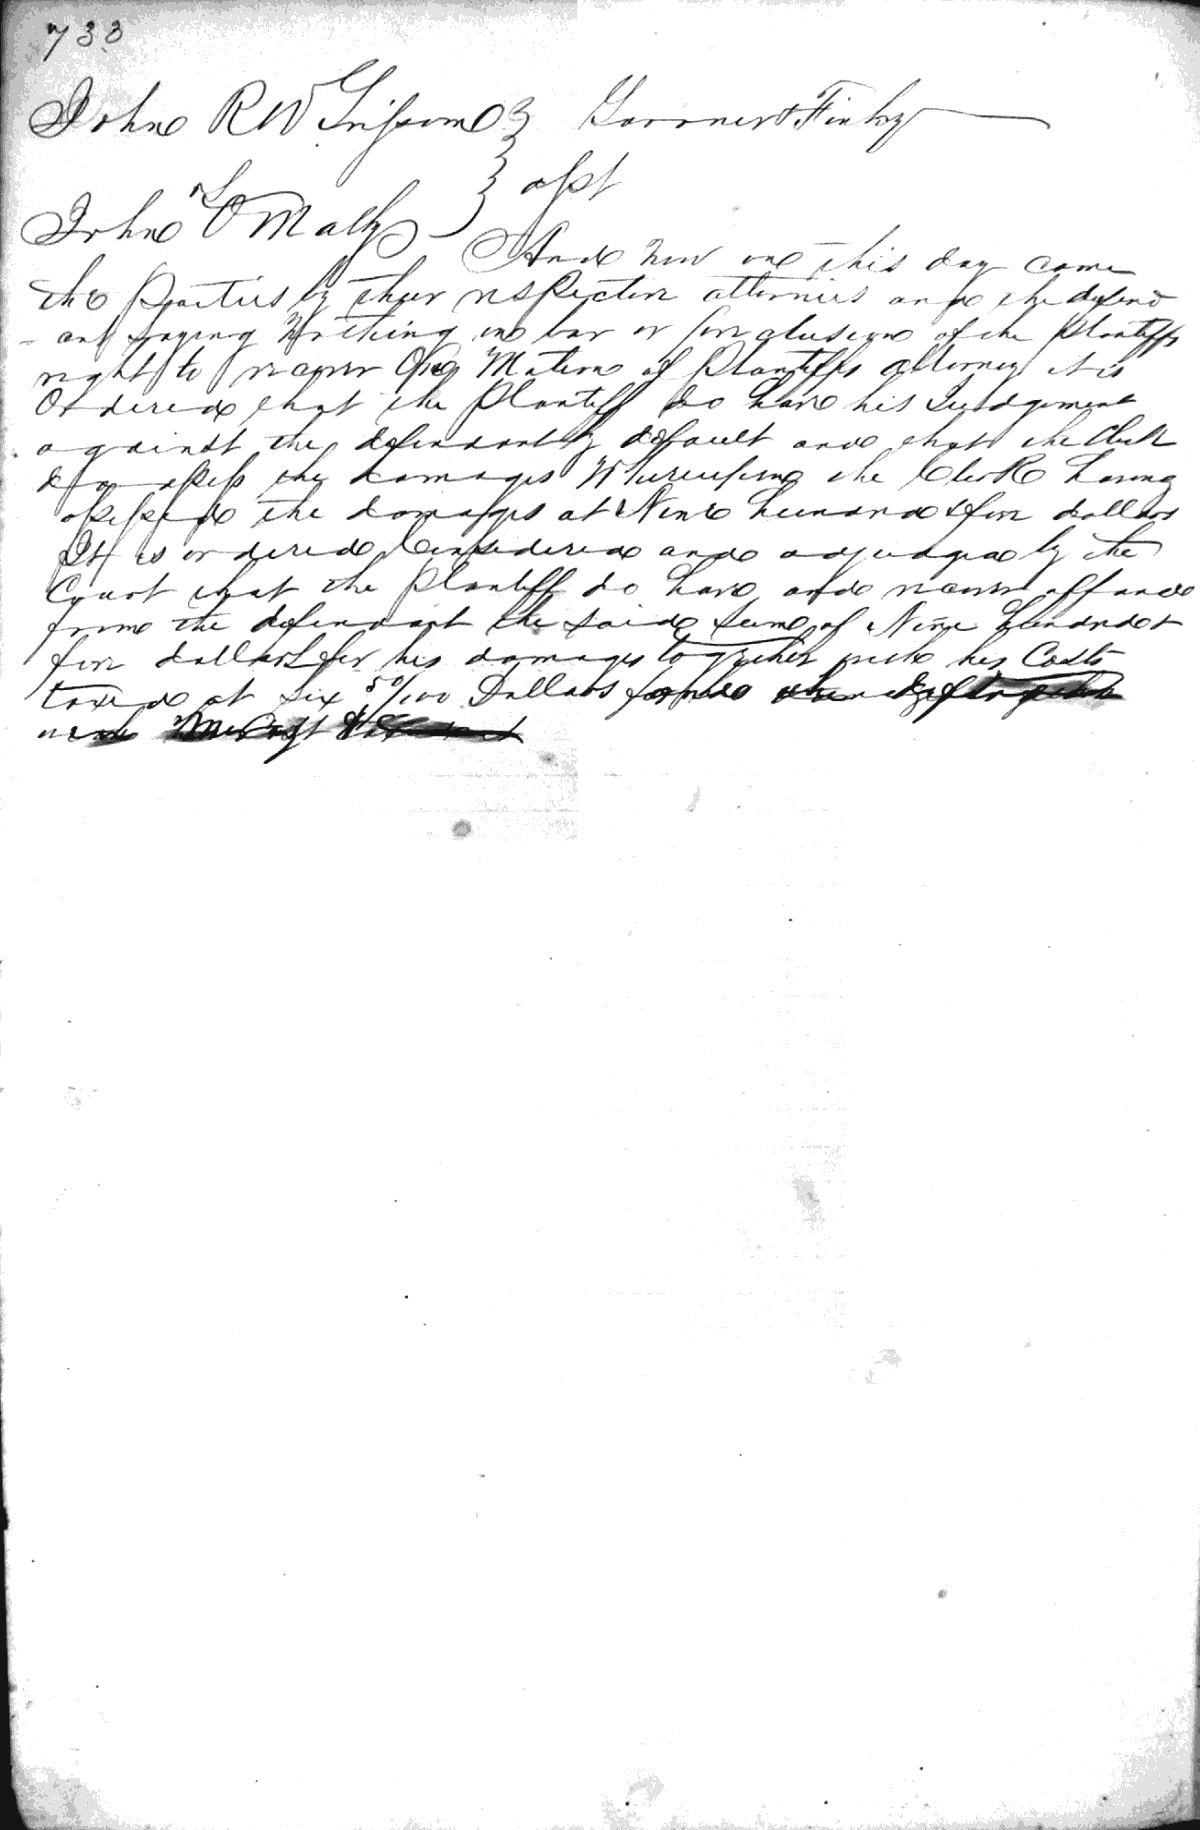 733
John R W Gripom } Garner & Finley
} asst
John O Maly
And now on this day came
the Parties by their respective attornies and the defend
-ant saying Nothing in bar or preclusion of the Plantiffs
right to recover On Motion of Plantiffs attorney it is
Ordered that the Plantiff do have his Judgement
against the defendant by default and that the Clerk
do assess the damages Whereupon the Clerk having
assessed the damages at Nine hundred & five dollars
It is ordered Considered and adjudged by the
Court that the Plantiff do have and recover off and
from the defendant the said sum of Nine hundred &
five dollars for his damages together with his Costs
taxed at Six 50/100 Dollars